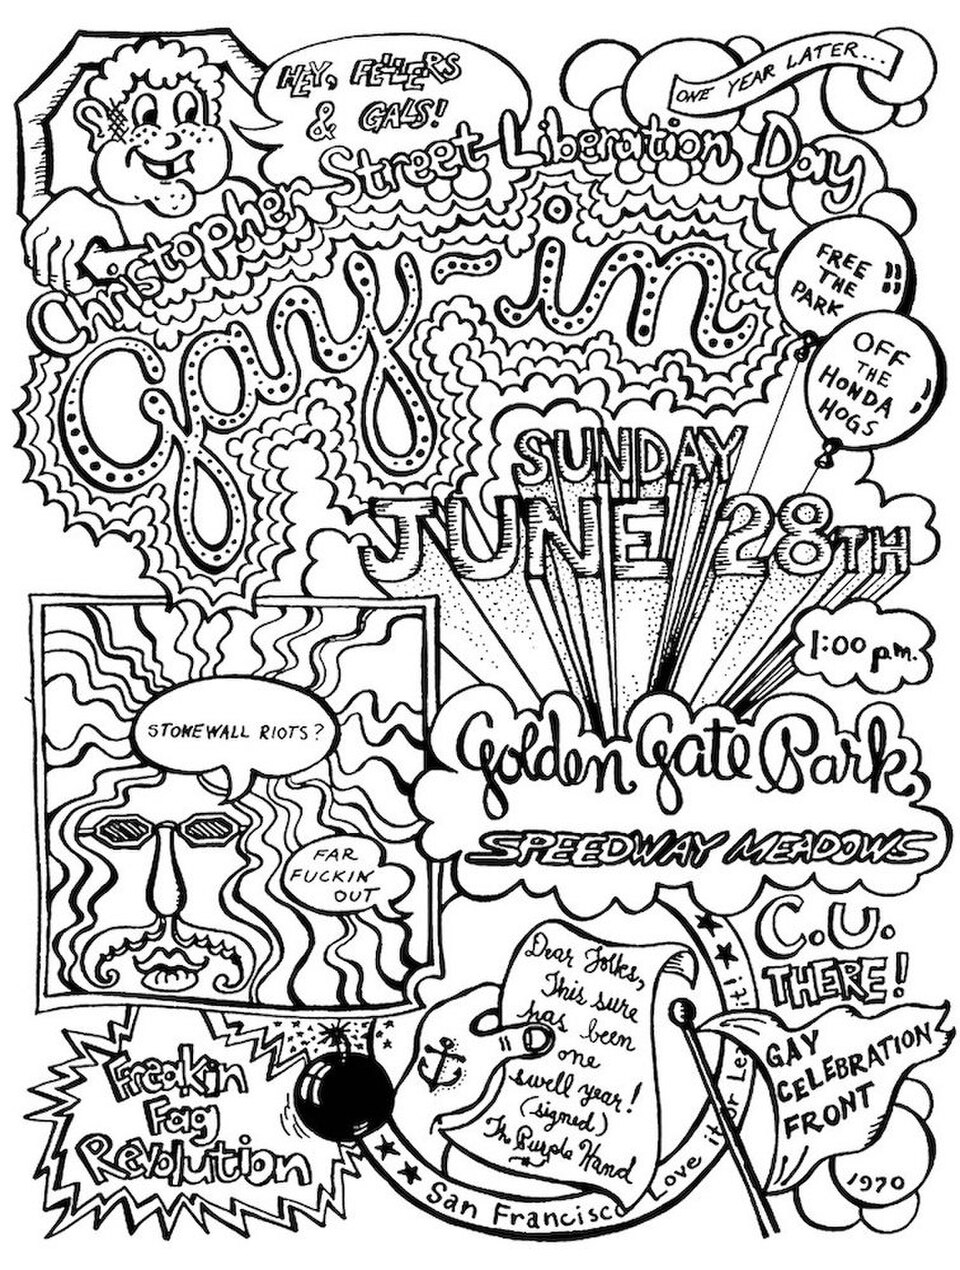 HEY, FELLERS
& GALS!
ONE YEAR LATER...
Christopher Street Liberation Day
Gay-in
FREE
THE
PARK
OFF
THE
HONDA
HOGS
SUNDAY
JUNE 28TH
1:00 p.m.
STONEWALL RIOTS?
Golden Gate Park
SPEEDWAY MEADOWS
FAR
FUCKIN'
OUT
C.U.
THERE!
Dear Folks,
This sure
has been
one
swell year!
(signed)
Th Purple Hand
GAY
CELEBRATION
FRONT
Freakin
Fag
Revolution
San Francisco
Love it or Leave it!
1970